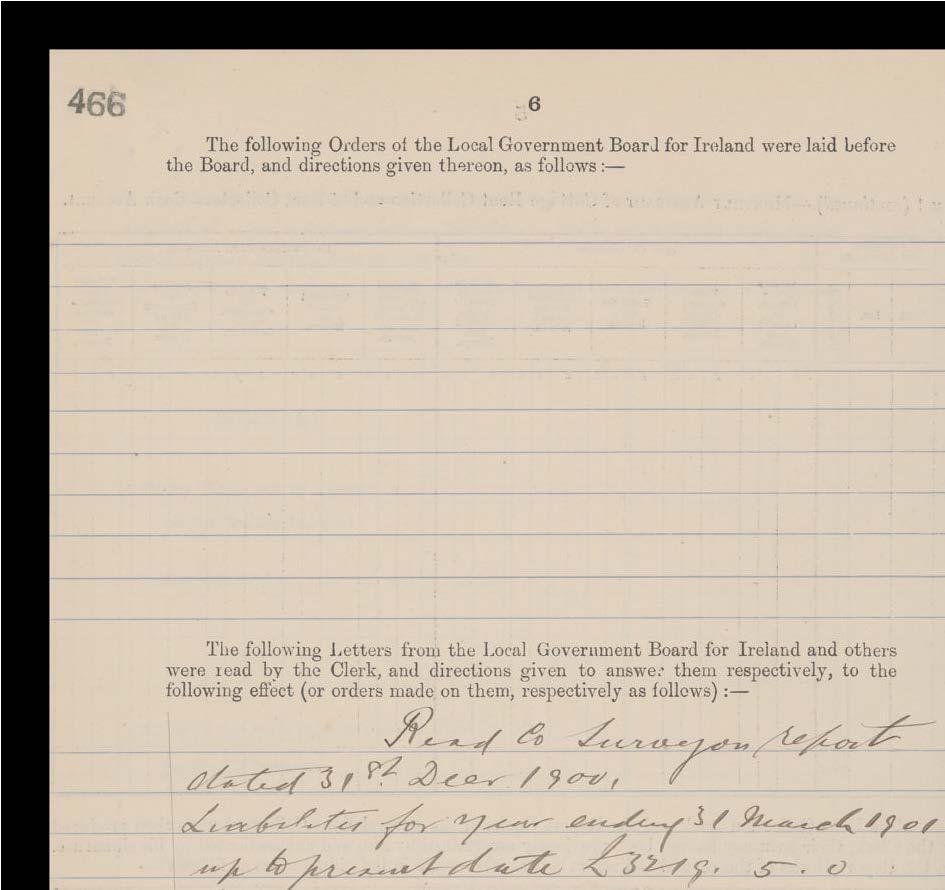 466
6
The following Orders of the Local Government Board for Ireland were laid before
the Board, and directions given thereon, as follows :—
The following Letters from the Local Government Board for Ireland and others
were read by the Clerk, and directions given to answer them respectively, to the
following effect (or orders made on them, respectively as follows) :—
Read Co Surveyor report
dated 31st Decr 1900,
Liabilities for year ending 31 March 1901
up to present date £3219. 5. 0